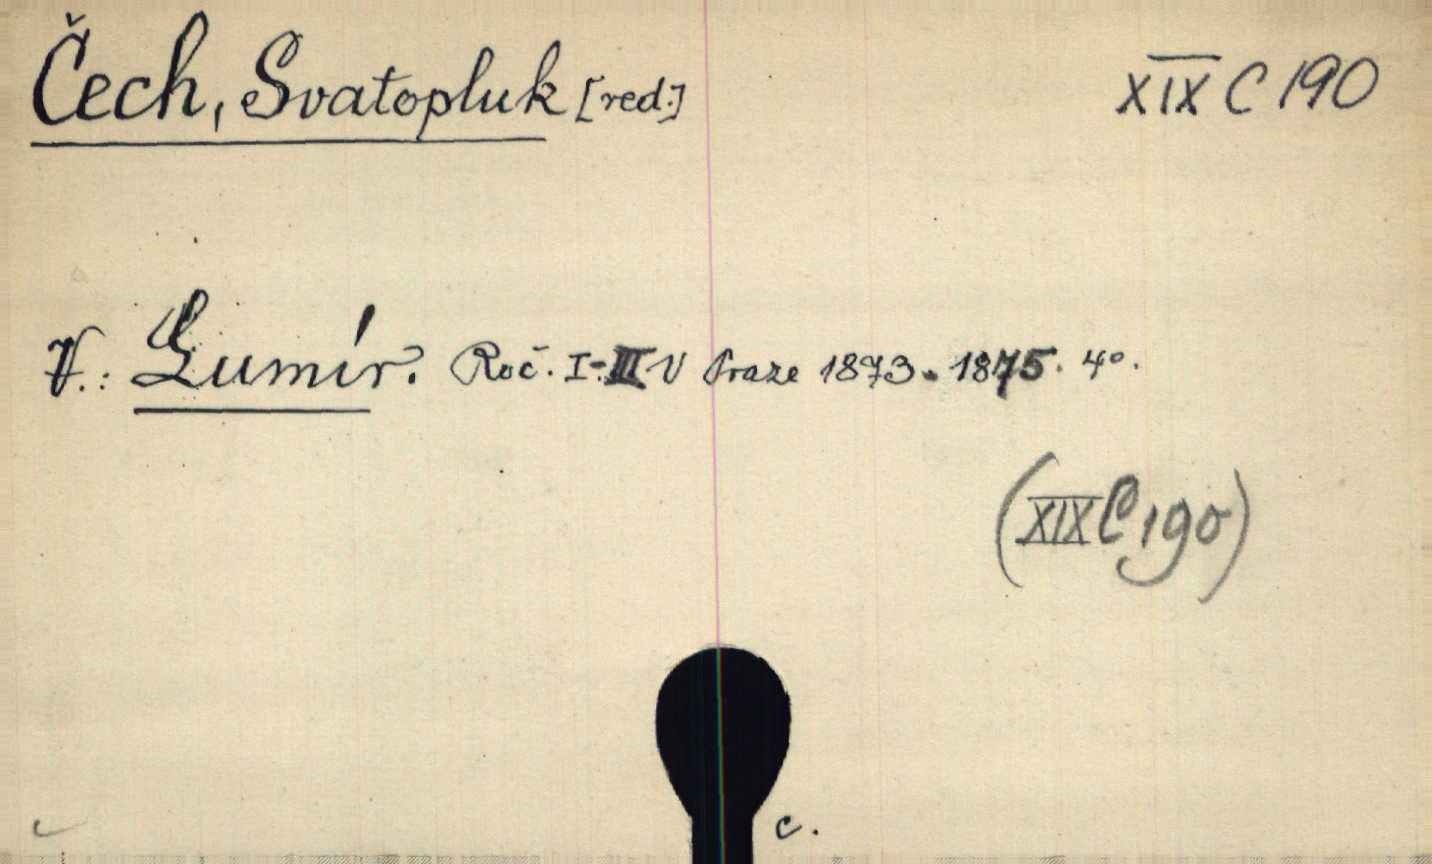 Čech, Svatopluk [red.] XIX C 190
V.: Lumír. Roč. I-III V Praze 1873. 1875. 4º.
(XIX C 190)
c.